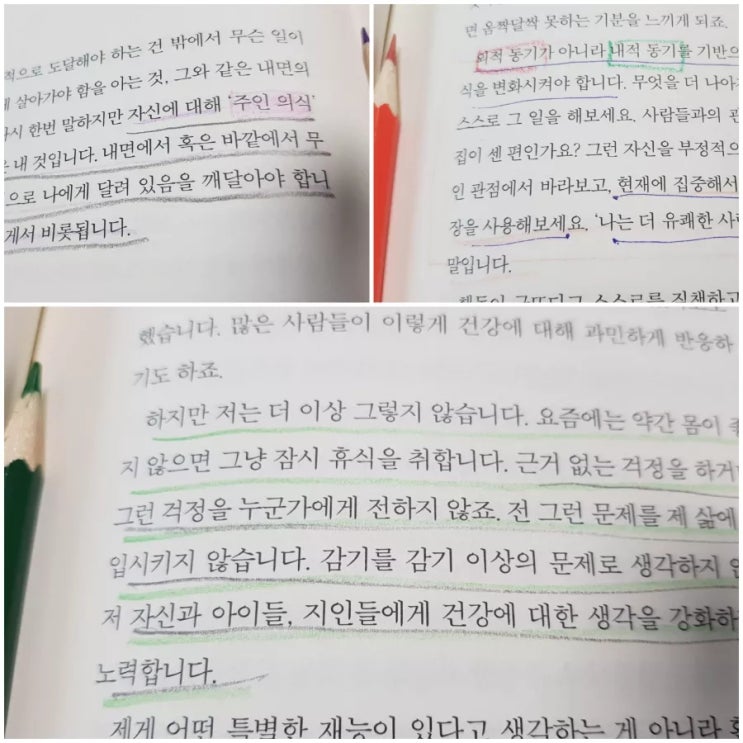 적으로 도달해야 하는 건 밖에서 무슨 일이
게 살아가야 함을 아는 것, 그와 같은 내면의
다시 한번 말하지만 자신에 대해 '주인 의식'
은 내 것입니다. 내면에서 혹은 바깥에서 무
으로 나에게 달려 있음을 깨달아야 합니
게서 비롯됩니다.
면 옴짝달싹 못하는 기분을 느끼게 되죠.
외적 동기가 아니라 내적 동기를 기반으
식을 변화시켜야 합니다. 무엇을 더 나아
스스로 그 일을 해보세요. 사람들과의 관
집이 센 편인가요? 그런 자신을 부정적으
인 관점에서 바라보고, 현재에 집중해서
장을 사용해보세요. '나는 더 유쾌한 사
말입니다.
했습니다. 많은 사람들이 이렇게 건강에 대해 과민하게 반응하
기도 하죠.
하지만 저는 더 이상 그렇지 않습니다. 요즘에는 약간 몸이 좋
지 않으면 그냥 잠시 휴식을 취합니다. 근거 없는 걱정을 하거
그런 걱정을 누군가에게 전하지 않죠. 전 그런 문제를 제 삶에
입시키지 않습니다. 감기를 감기 이상의 문제로 생각하지 않
저 자신과 아이들, 지인들에게 건강에 대한 생각을 강화하
노력합니다.
제게 어떤 특별한 재능이 있다고 생각하는 게 아니라